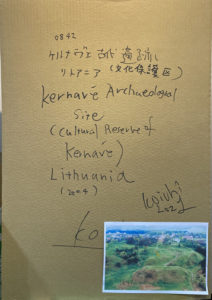 0842
ケルナヴェ古代遺跡
リトアニア (文化保護区)
Kernavė Archaeological
Site
(Cultural Reserve of
Kernavė)
Lithuania
(2004)
Koichi
Ko